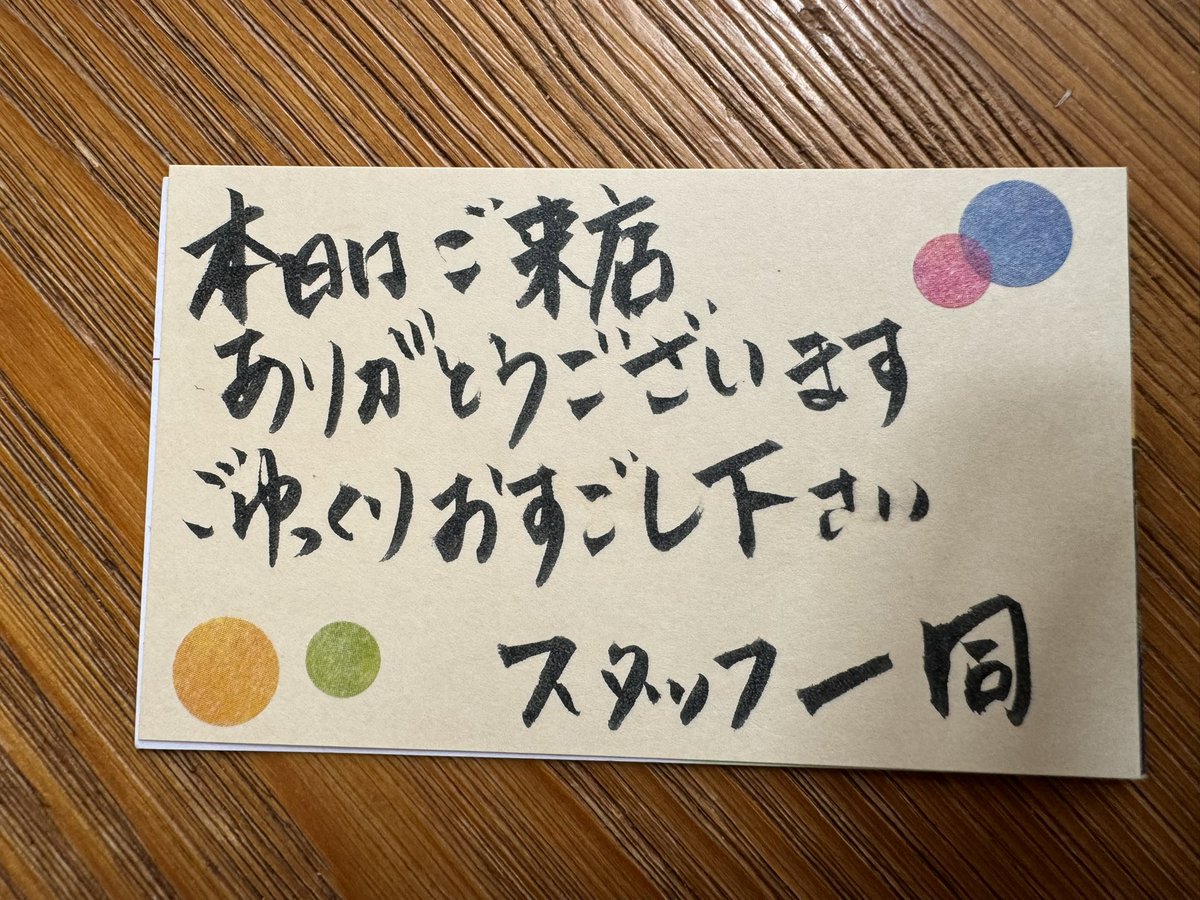 本日はご来店
ありがとうございます
ごゆっくりおすごし下さい
スタッフ一同